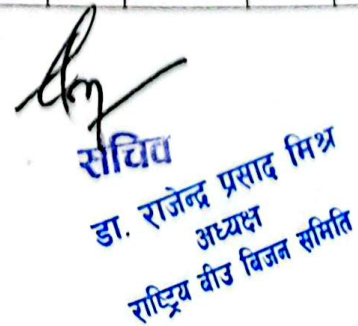 सचिव
डा. राजेन्द्र प्रसाद मिश्र
अध्यक्ष
राष्ट्रिय वीउ विजन समिति